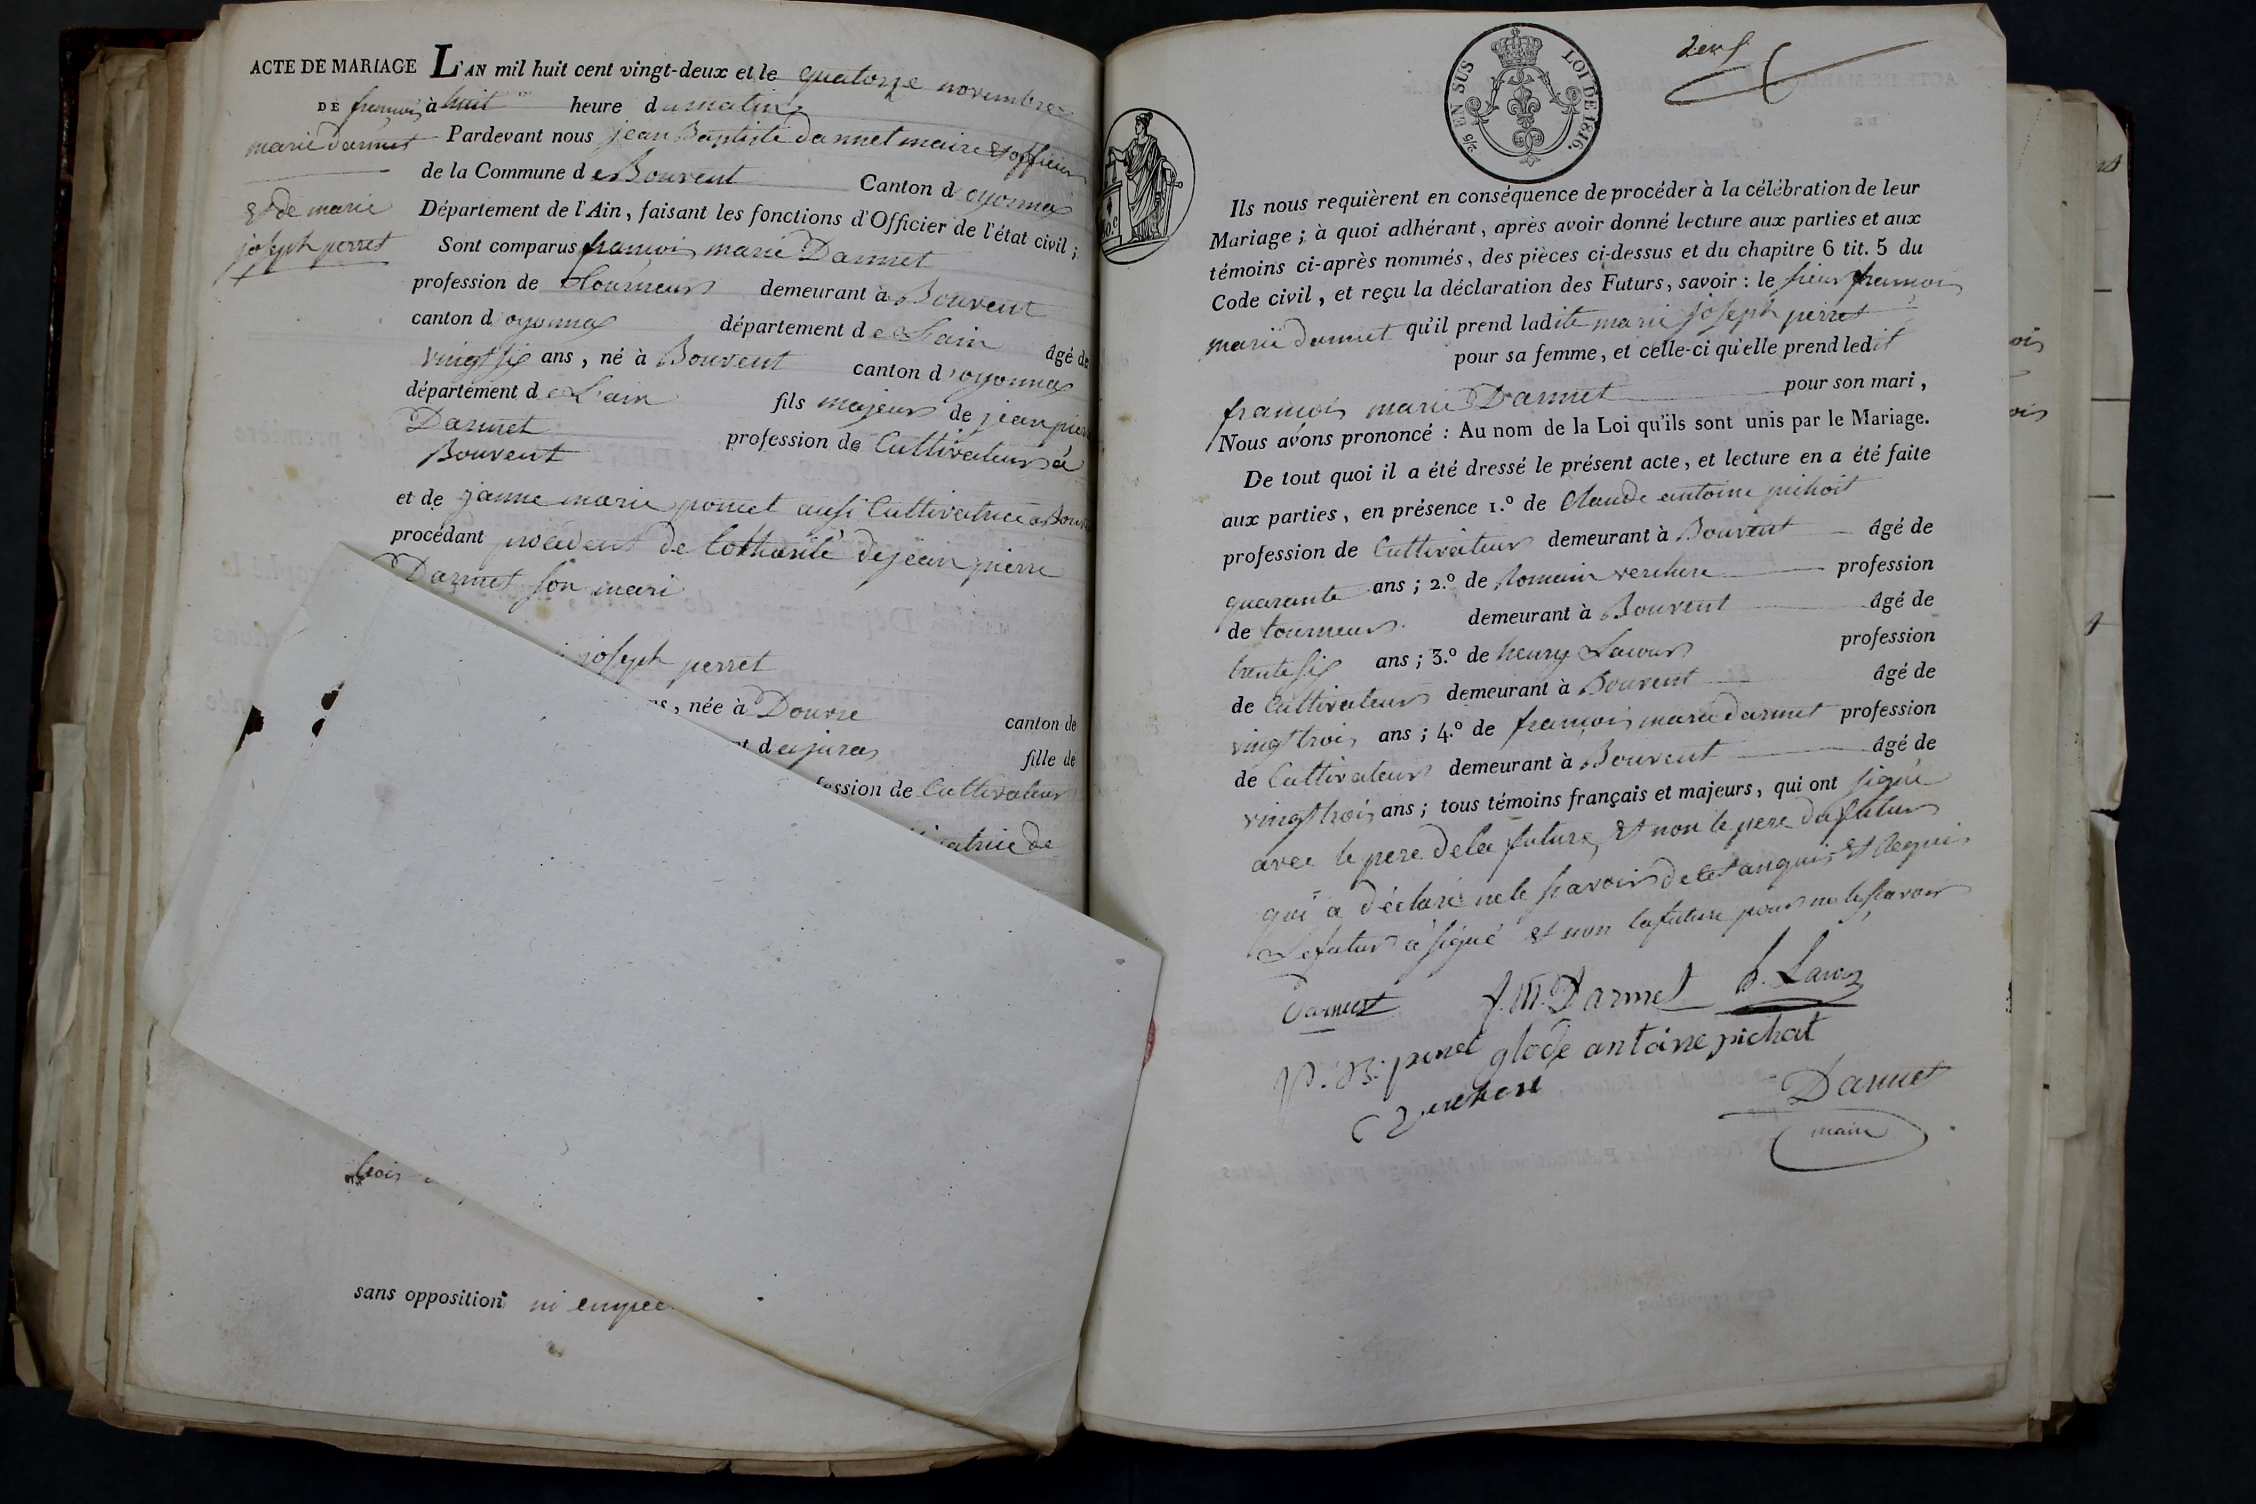 ACTE DE MARIAGE
DE françois
marie darmet
& de marie
joseph perret
L'AN mil huit cent vingt-deux et le quatorze novembre
à huit heure du matin
Pardevant nous jean Baptiste darmet maire & officier
de la Commune de Bouvent Canton d oyonnax
Département de l'Ain, faisant les fonctions d'Officier de l'état civil ;
Sont comparus françois marie Darmet
profession de tourneur demeurant à Bouvent
canton d oyonnax département de L'ain âgé de
vingt six ans, né à Bouvent canton d'oyonnax
département de L'ain fils majeur de jean pierre
Darmet profession de Cultivateur à
Bouvent
et de janne marie poncet aussi Cultivatrice a Bouv
procédant procedent de Lotharité de jean pierre
Darmet son mari
joseph perret
ns, née à Douvre canton de
nt du jura fille de
fession de Cultivateur
atrice de
trois
sans opposition ni empee
5/c. EN SUS LOI DE 1816.
Ils nous requièrent en conséquence de procéder à la célébration de leur
Mariage ; à quoi adhérant, après avoir donné lecture aux parties et aux
témoins ci-après nommés, des pièces ci-dessus et du chapitre 6 tit. 5 du
Code civil, et reçu la déclaration des Futurs, savoir : le sieur françois
marie darmet qu'il prend ladite marie joseph perret
pour sa femme, et celle-ci qu'elle prend ledit
françois marie Darmet pour son mari,
Nous avons prononcé : Au nom de la Loi qu'ils sont unis par le Mariage.
De tout quoi il a été dressé le présent acte, et lecture en a été faite
aux parties, en présence 1.º de Claude antoine pichoit
profession de Cultivateur demeurant à Bouvent âgé de
quarante ans ; 2.º de Romain verchere profession
de tourneur demeurant à Bouvent âgé de
trente six ans ; 3.º de henry Lacour profession
de Cultivateur demeurant à Bouvent âgé de
vingt trois ans ; 4.º de françois marie darmet profession
de Cultivateur demeurant à Bouvent âgé de
vingt trois ans ; tous témoins français et majeurs, qui ont signé
avec le pere de la future & non le pere du futur
qui a déclaré ne le savoir de cet anquis & Requis
Le futur a signé & non la future pour ne le savoir
Darmet f. m. Darmet h. Lacour
perret glode antoine pichat
verchere
Darmet
maire